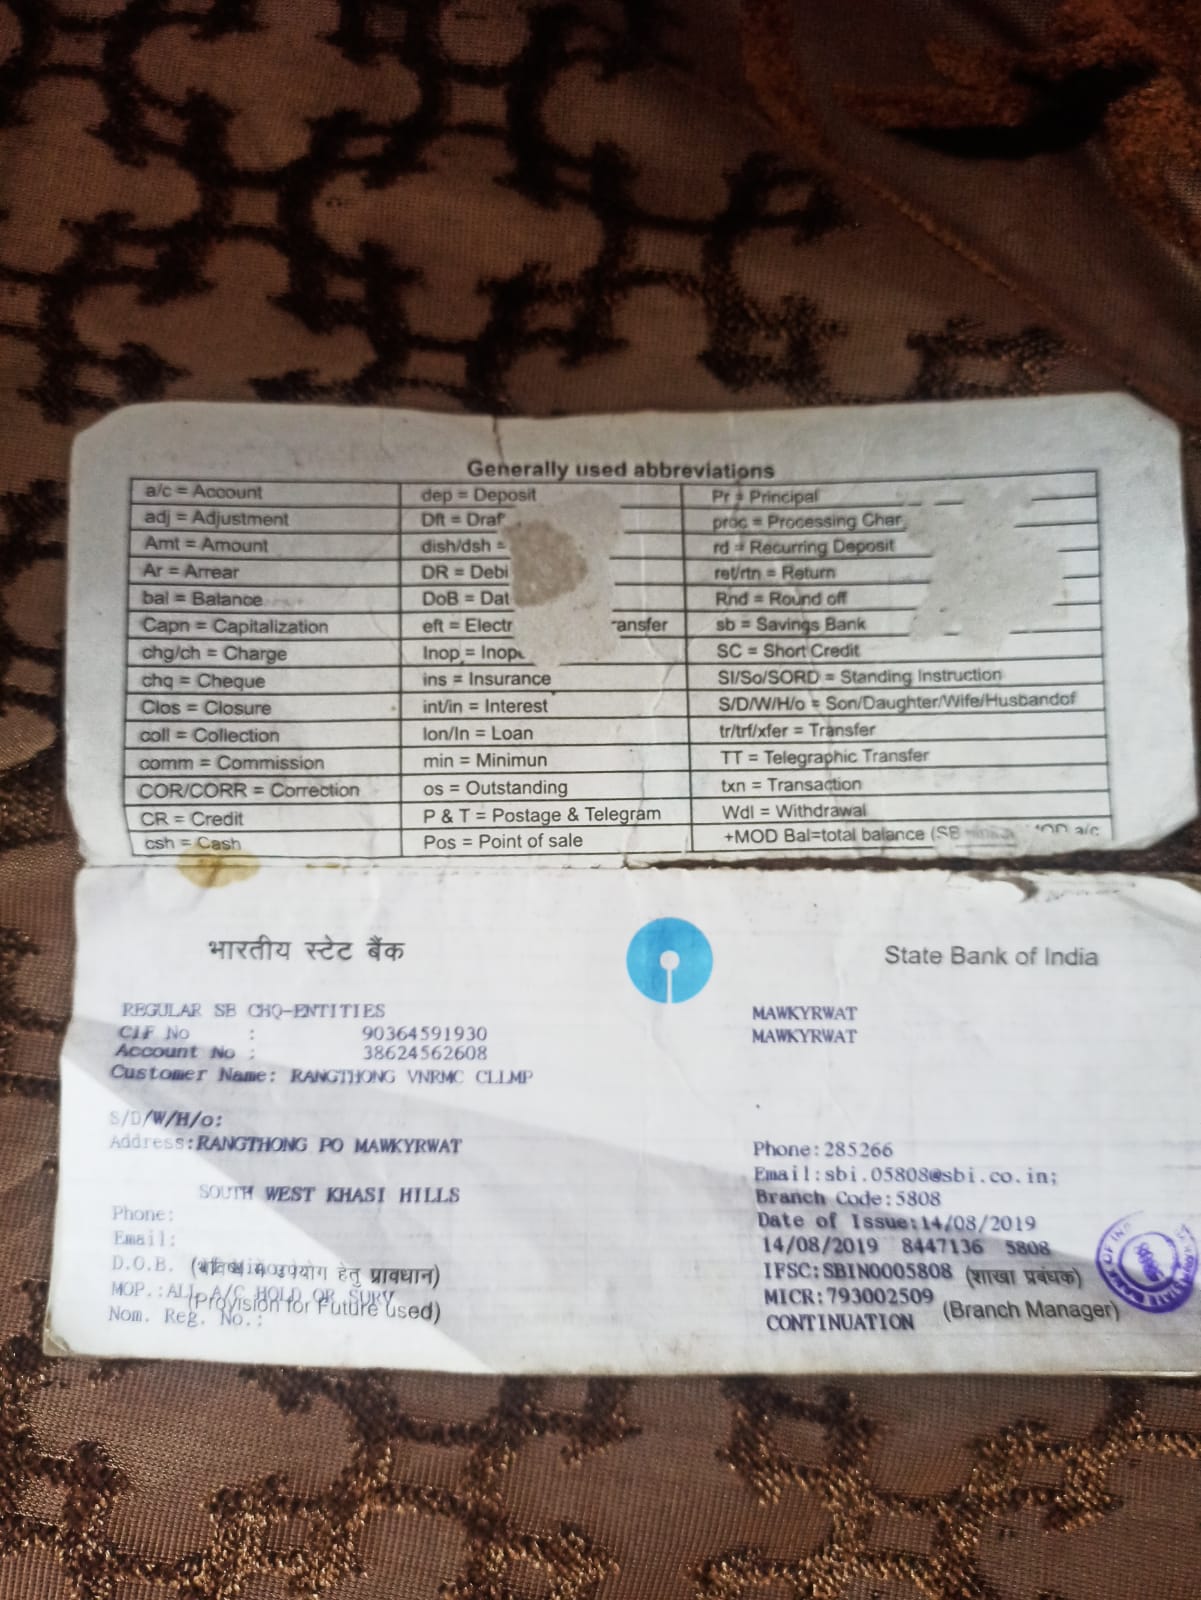 Generally used abbreviations
a/c = Account
adj = Adjustment
Amt = Amount
Ar = Arrear
bal = Balance
Capn = Capitalization
chg/ch = Charge
chq = Cheque
Clos = Closure
coll = Collection
comm = Commission
COR/CORR = Correction
CR = Credit
csh = Cash
dep = Deposit
Dft =
dish/dsh =
DR =
DoB =
eft =
Inop =
ins = Insurance
int/in = Interest
lon/ln = Loan
min = Minimun
os = Outstanding
P & T = Postage & Telegram
Pos = Point of sale
Pr = Principal
proc = Processing
rd = Recurring Deposit
ret/rtn = Return
Rnd = Round off
sb = Savings Bank
SC = Short Credit
SI/So/SORD = Standing Instruction
S/D/W/H/o = Son/Daughter/Wife/Husbandof
tr/trf/xfer = Transfer
TT = Telegraphic Transfer
txn = Transaction
Wdl = Withdrawal
+MOD Bal=total balance (SB a/c
भारतीय स्टेट बैंक
State Bank of India
REGULAR SB CHQ-ENTITIES
CIF No : 90364591930
Account No : 38624562608
Customer Name: RANGTHONG VNRMC CLLMP
S/D/W/H/o:
Address:RANGTHONG PO MAWKYRWAT
SOUTH WEST KHASI HILLS
Phone:
Email:
D.O.B.
(भविष्य में उपयोग हेतु प्रावधान)
MOP.:ALL A/C HOLD OR SURV
(Provision for Future used)
Nom. Reg. No.:
MAWKYRWAT
MAWKYRWAT
Phone:285266
Email:sbi.05808@sbi.co.in;
Branch Code:5808
Date of Issue:14/08/2019
14/08/2019 8447136 5808
IFSC:SBIN0005808 (शाखा प्रबंधक)
MICR:793002509
(Branch Manager)
CONTINUATION